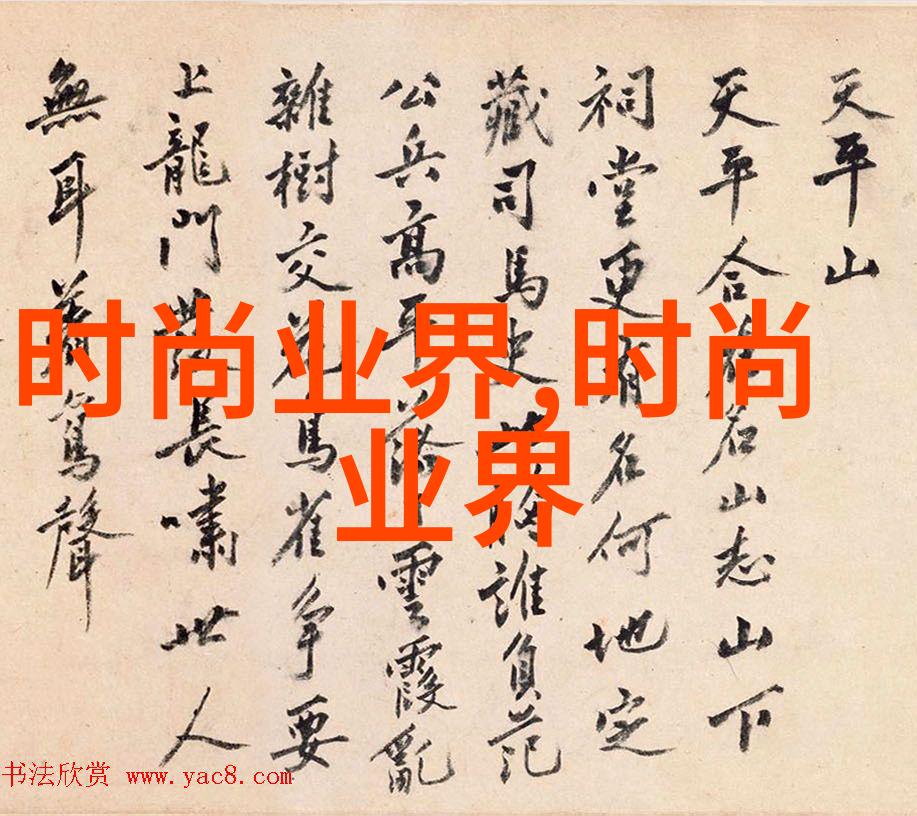 天平山
天平合名山志山下
祠堂更有名何地定
藏司馬史誰負范
公兵高平雲霞亂
雜樹交花鳥雀争要
上龍門長嘯世人
無耳聲
时尚业界,时尚
业界
书法欣赏 www.yac8.com